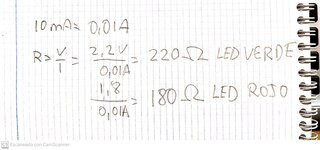 10 mA = 0,01A
R > V/I = 2,2V/0,01A = 220Ω LED VERDE
1,8/0,01A = 180Ω LED ROJO
Escaneado con CamScanner